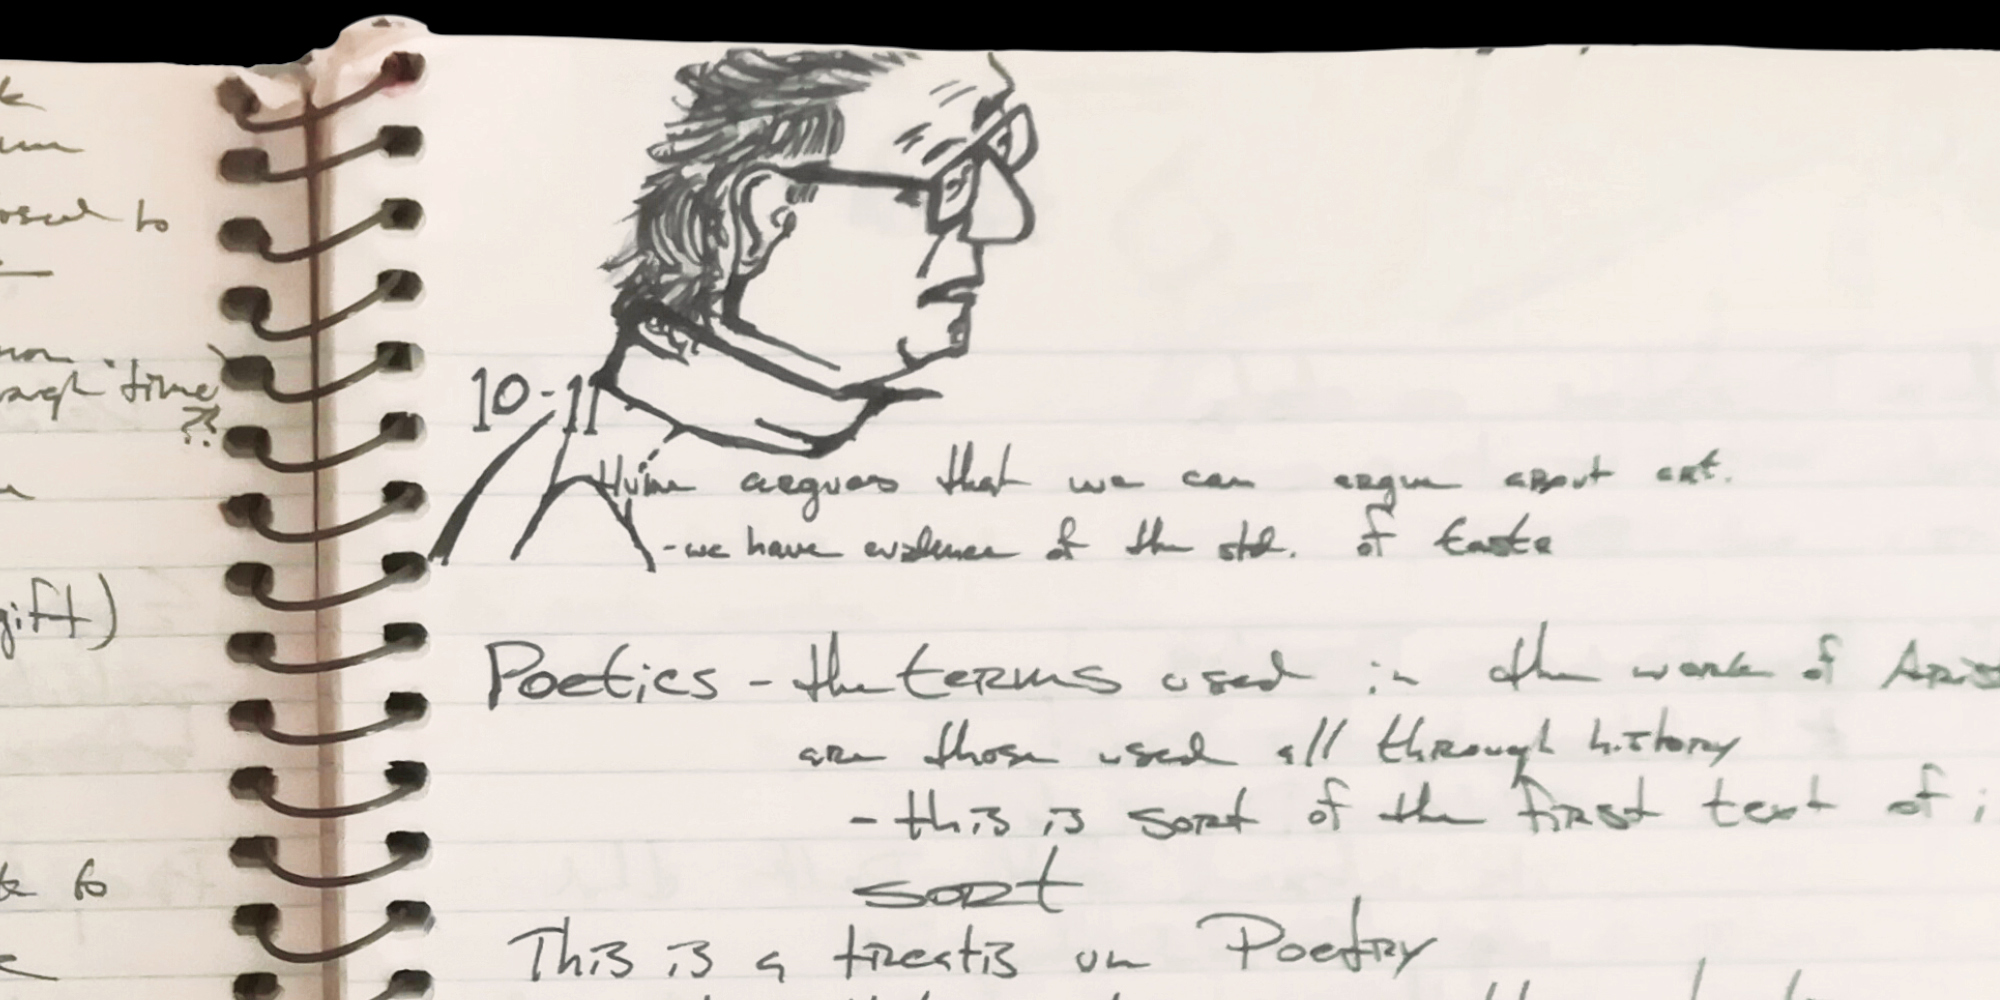 k
osed to
ough time
??
gift)
to
10-11
Hume argues that we can argue about art.
-we have evidence of the std. of taste
Poetics - the terms used in the work of Arist
are those used all through history
- this is sort of the first text of i
sort
This is a treatis on Poetry